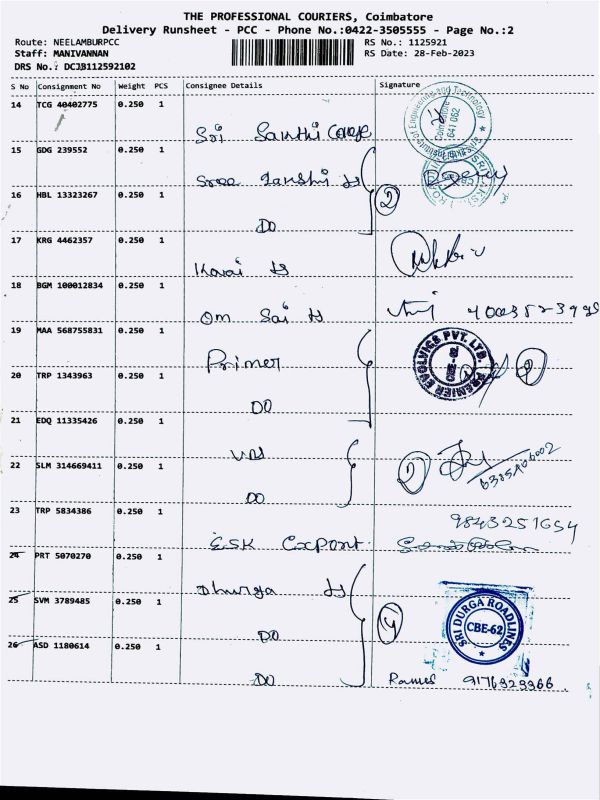 THE PROFESSIONAL COURIERS, Coimbatore
Delivery Runsheet - PCC - Phone No.:0422-3505555 - Page No.:2
Route: NEELAMBURPCC RS No.: 1125921
Staff: MANIVANNAN RS Date: 28-Feb-2023
DRS No.: DCJB112592102
S No Consignment No Weight PCS Consignee Details Signature
14 TCG 40402775 0.250 1 Sri Sakthi College
Coimbatore 641 062
15 GDG 239552 0.250 1 Sree Lakshi
2
16 HBL 13323267 0.250 1 DO
17 KRG 4462357 0.250 1 Kovai
18 BGM 100012834 0.250 1 Om Sai
19 MAA 568755831 0.250 1 Primer
PREMIER EVOLVICS PVT. LTD.
20 TRP 1343963 0.250 1 DO
21 EDQ 11335426 0.250 1
22 SLM 314669411 0.250 1 DO
23 TRP 5834386 0.250 1 ESK Export
9843251654
24 PRT 5070270 0.250 1 Dhurga
25 SVM 3789485 0.250 1 DO
SRI DURGA ROADLINES
CBE-62
26 ASD 1180614 0.250 1 DO
Rames 9176929966